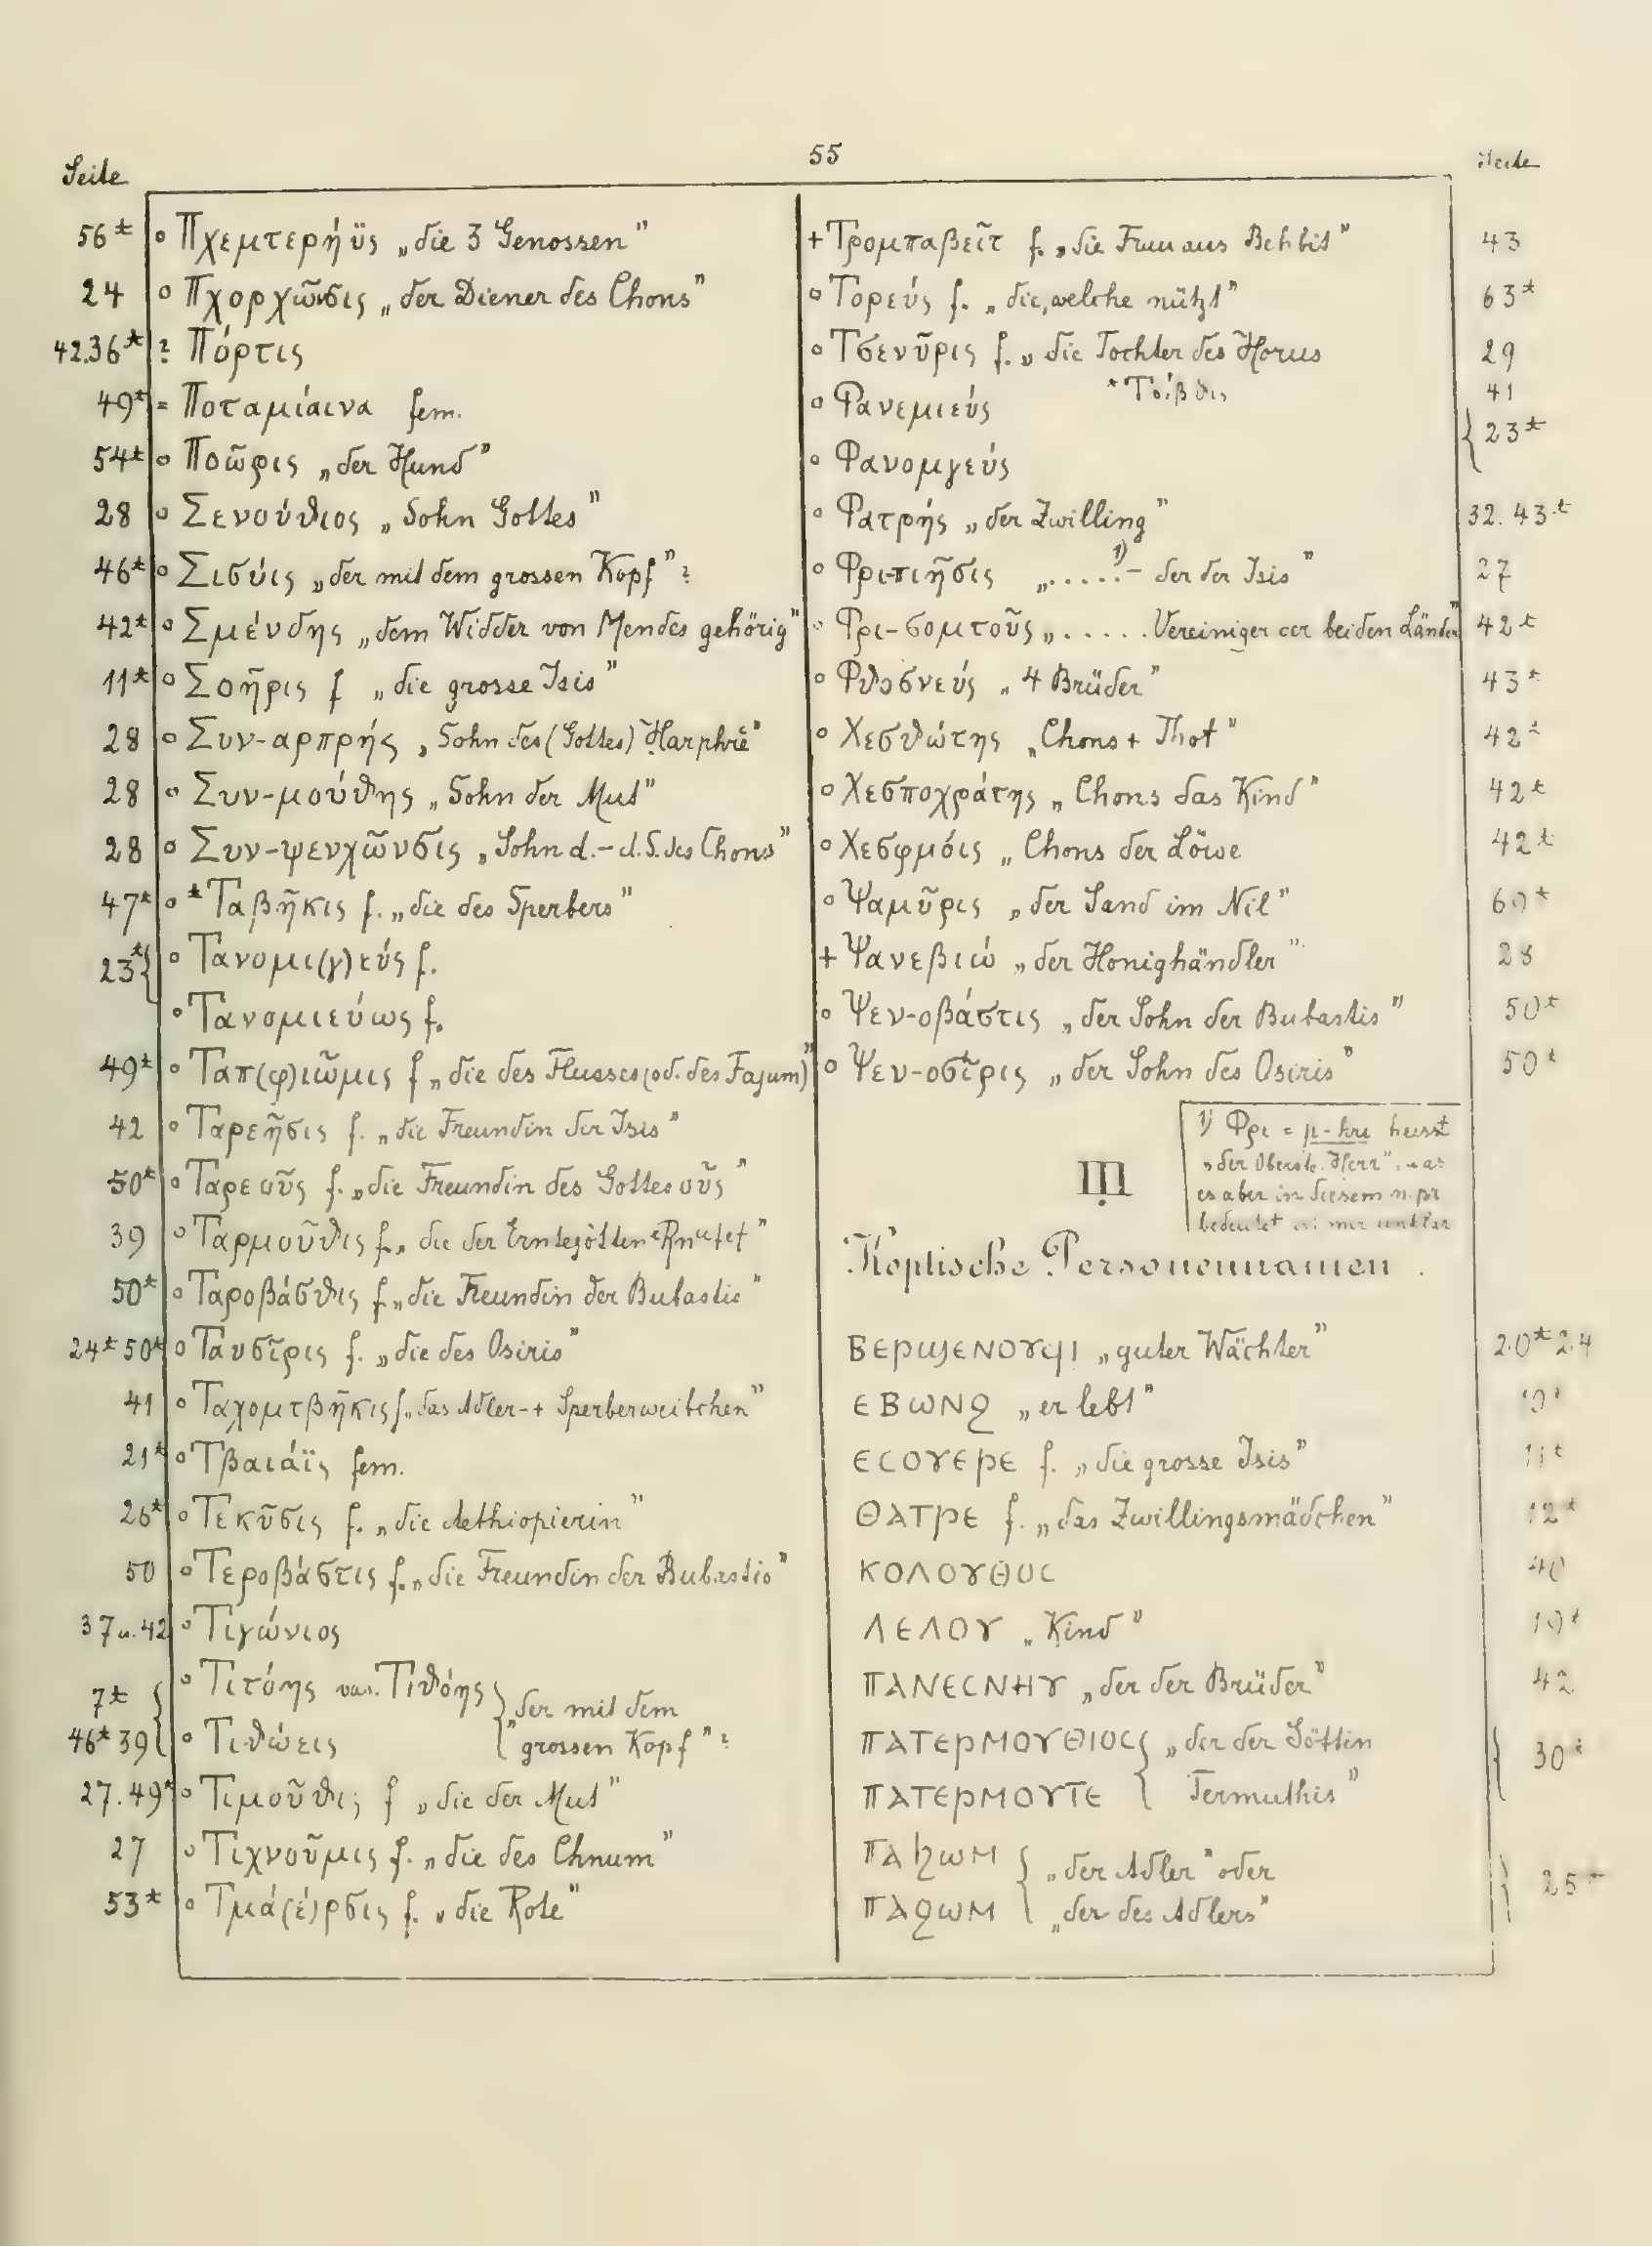 55
Seite
56* ∘ Πχεμτερήϋς „die 3 Genossen”
24 ∘ Πχορχῶνσις „der Diener des Chons”
42.36* ? Πόρτις
49* = Ποταμίαινα fem.
54* ∘ Ποῶρις „der Hund”
28 ∘ Σενούθιος „Sohn Gottes”
46* ∘ Σισύις „der mit dem grossen Kopf”?
42* ∘ Σμένδης „dem Widder von Mendes gehörig”
11* ∘ Σοῆρις f „die grosse Isis”
28 ∘ Συν-αρπρής „Sohn des (Gottes) Harphrē”
28 ∘ Συν-μούθης „Sohn der Mut”
28 ∘ Συν-ψενχῶνσις „Sohn d.-d.S. des Chons”
47* ∘ *Ταβῆκις f. „die des Sperbers”
23* { ∘ Τανομι(γ)εύς f.
∘ Τανομιεύως f.
49* ∘ Ταπ(φ)ιῶμις f „die des Flusses (od. des Fajum)”
42 ∘ Ταρεῆσις f. „die Freundin der Isis”
50* ∘ Ταρεοῦς f. „die Freundin des Gottes οὖς”
39 ∘ Ταρμοῦθις f. „die der Erntegöttin
50* ∘ Ταροβάσθις f „die Freundin der Bubastis”
24* 50* ∘ Ταυσῖρις f. „die des Osiris”
41 ∘ Ταχομτβῆκις f. „das Adler-+ Sperberweibchen”
21* ∘ Τβαιάϊς fem.
26* ∘ Τεκῦσις f. „die Aethiopierin”
50 ∘ Τεροβάστις f. „die Freundin der Bubastis”
37 u. 42 ∘ Τιγώνιος
7* { ∘ Τιτόης var. Τιθόης } „der mit dem
46* 39 { ∘ Τιθώεις } grossen Kopf”?
27.49* ∘ Τιμοῦθις f „die der Mut”
27 ∘ Τιχνοῦμις f. „die des Chnum”
53* ∘ Τμά(έ)ρσις f. „die Rote”
Seite
+ Τρομπαβεῖτ f. „die Frau aus Behbit” 43
∘ Τορεύς f. „die, welche nützt” 63*
∘ Τσενῦρις f. „die Tochter des Horus 29
41
∘ Φανεμιεύς { 23*
∘ Φανομγεύς
∘ Φατρής „der Zwilling” 32. 43*
∘ Φρι-πιῆσις „.....¹⁾- der der Isis” 27
∘ Φρι-σομτοῦς „..... Vereiniger der beiden Länder” 42*
∘ Φθοσνεύς „4 Brüder” 43*
∘ Χεσθώτης „Chons + Thot” 42*
∘ Χεσποχράτης „Chons das Kind” 42*
∘ Χεσφμόις „Chons der Löwe 42*
∘ Ψαμῦρις „der Sand im Nil” 60*
+ Ψανεβιώ „der Honighändler” 28
∘ Ψεν-οβάστις „der Sohn der Bubastis” 50*
∘ Ψεν-οσῖρις „der Sohn des Osiris” 50*
1) Φρι = p-hri heisst
„der Oberste, Herr”, was
es aber in diesem n. pr
bedeutet ist mir unklar
III
Koptische Personennamen.
ⲂⲈⲢϢⲈⲚⲞⲨϤⲒ „guter Wächter” 20* 24
ⲈⲂⲰⲚϨ „er lebt”
ⲈⲤⲞⲨⲈⲢⲈ f. „die grosse Isis” 11*
ⲐⲀⲦⲢⲈ f. „das Zwillingsmädchen” 12*
ⲔⲞⲖⲞⲨⲐⲞⲤ 40
ⲖⲈⲖⲞⲨ „Kind” 19*
ⲠⲀⲚⲈⲤⲚⲎⲨ „der der Brüder” 42
ⲠⲀⲦⲈⲢⲘⲞⲨⲐⲒⲞⲤ { „der der Göttin } 30*
ⲠⲀⲦⲈⲢⲘⲞⲨⲦⲈ { Termuthis”
ⲠⲀϦⲰⲘ { „der Adler” oder } 25*
ⲠⲀϨⲰⲘ { „der des Adlers”